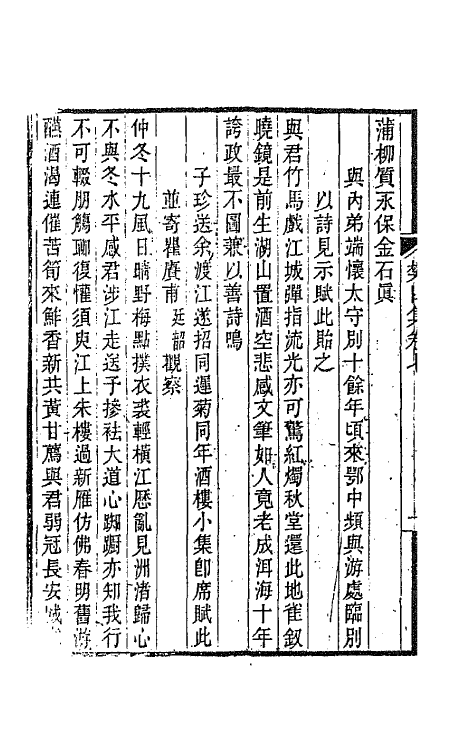 蒲柳質永保金石眞
與內弟端懷太守別十餘年頃來鄂中頻與游處臨別
以詩見示賦此貽之
與君竹馬戲江城彈指流光亦可驚紅燭秋堂還此地雀釵
曉鏡是前生湖山置酒空悲感文筆如人竟老成洱海十年
誇政最不圖兼以善詩鳴
子珍送余渡江遂招同遲菊同年酒樓小集卽席賦此
並寄瞿賡甫廷韶觀察
仲冬十九風日晴野梅點撲衣裘輕橫江歷亂見洲渚歸心
不與冬水平感君涉江走送予摻袪大道心踟躕亦知我行
不可輟朋觴聊復懽須臾江上朱樓過新雁仿佛春明舊游
醼酒渴連催苦筍來鮮香新共黃甘薦與君弱冠長安城